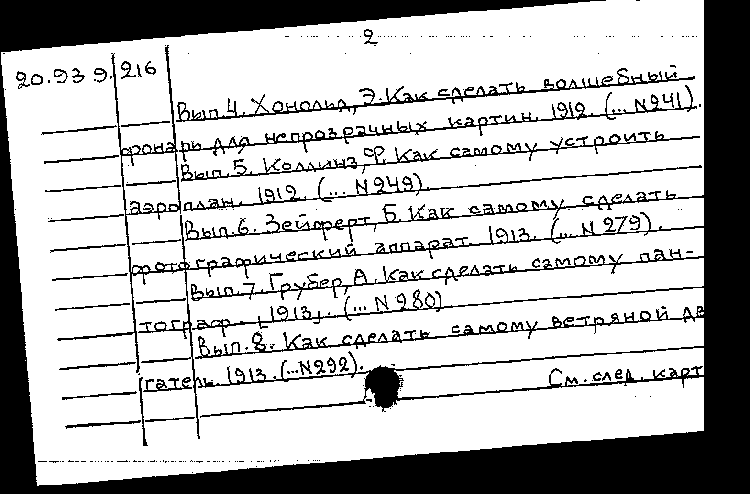 2
20.93 9. 216
Вып.4. Хонольд, Э. Как сделать волшебный
фонарь для непрозрачных картин. 1912. (... N241).
Вып.5. Коллинз, Ф. Как самому устроить
аэроплан. 1912. (... N249).
Вып.6. Зейферт, Б. Как самому сделать
фотографический аппарат. 1913. (... N 279).
Вып.7. Грубер, А. Как сделать самому пан-
тограф. [1913]. (... N280)
Вып.8. Как сделать самому ветряной дв
гатель. 1913. (...N292).
См. след. карт